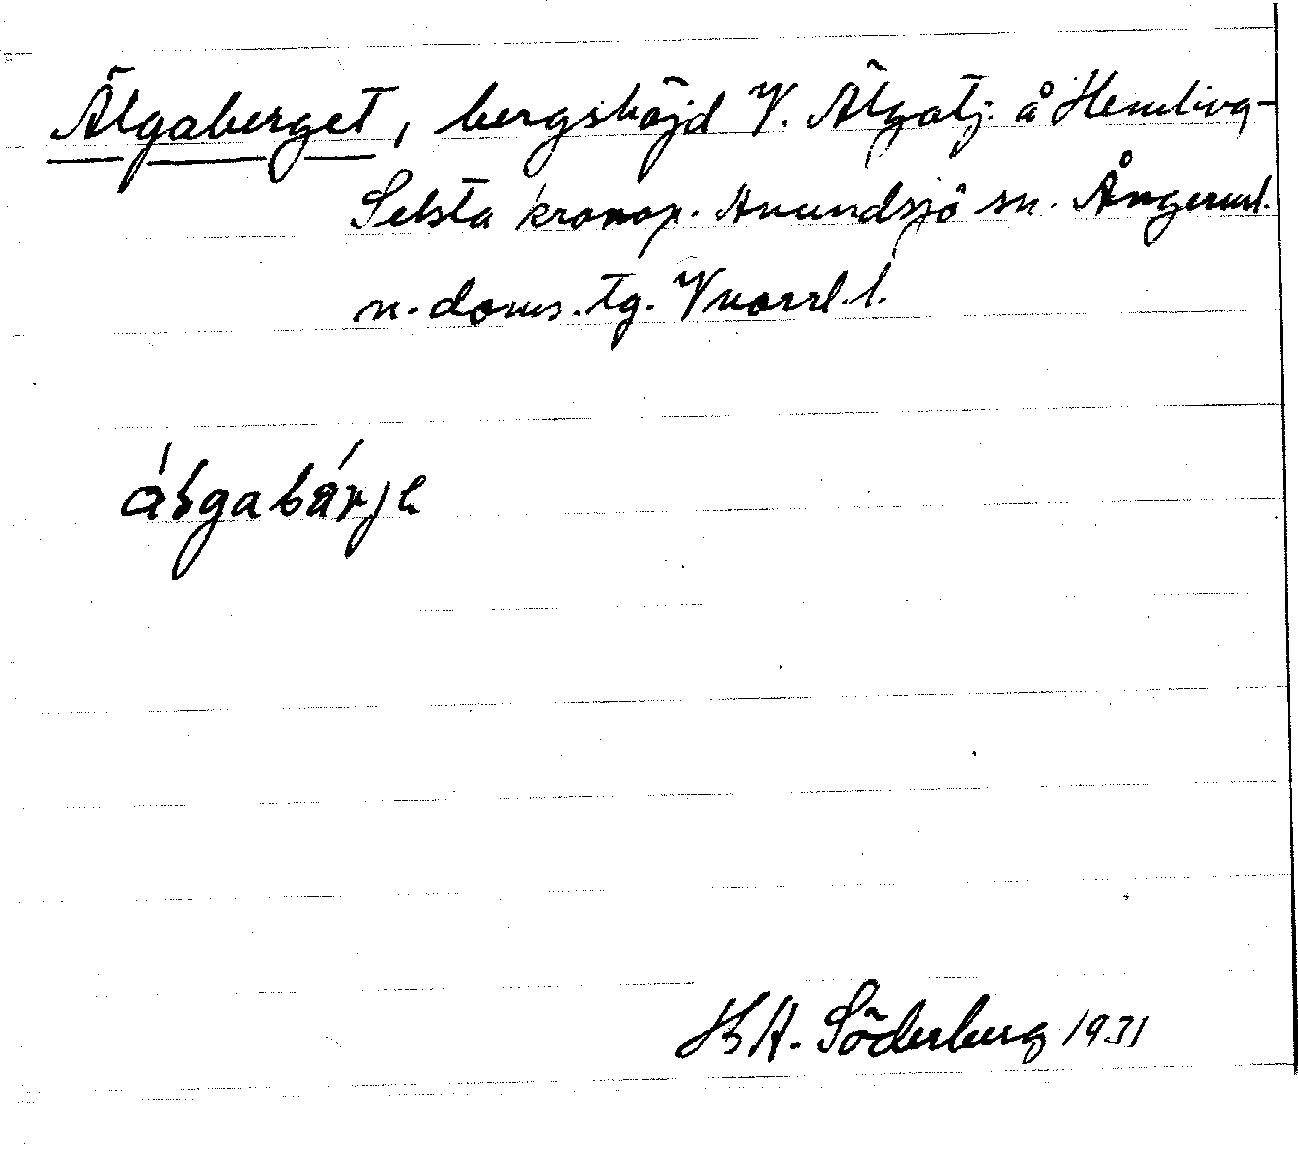 Älgaberget, bergshöjd V. Älgatj. å Hemling-
Selsta kronop. Anundsjö sn. Ångerml.
n. doms. tg. Vnorrl. l.
H A. Söderberg 1931